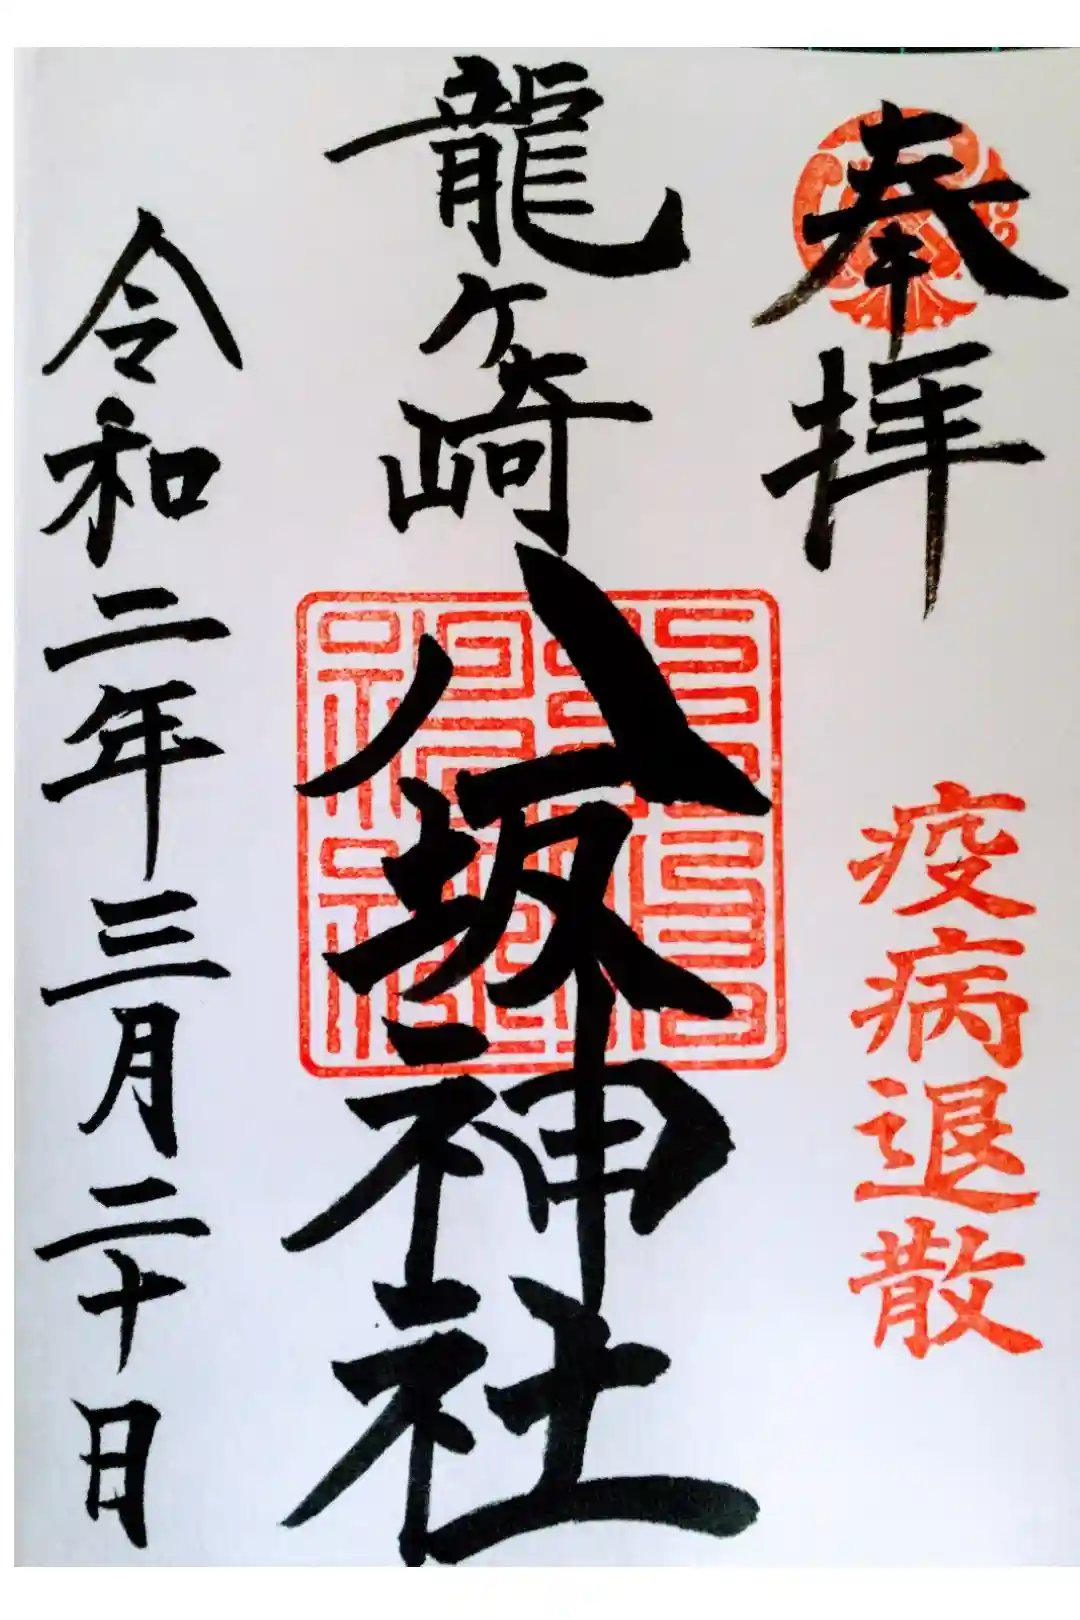 奉拝
疫病退散
龍ヶ崎八坂神社
令和二年三月二十日